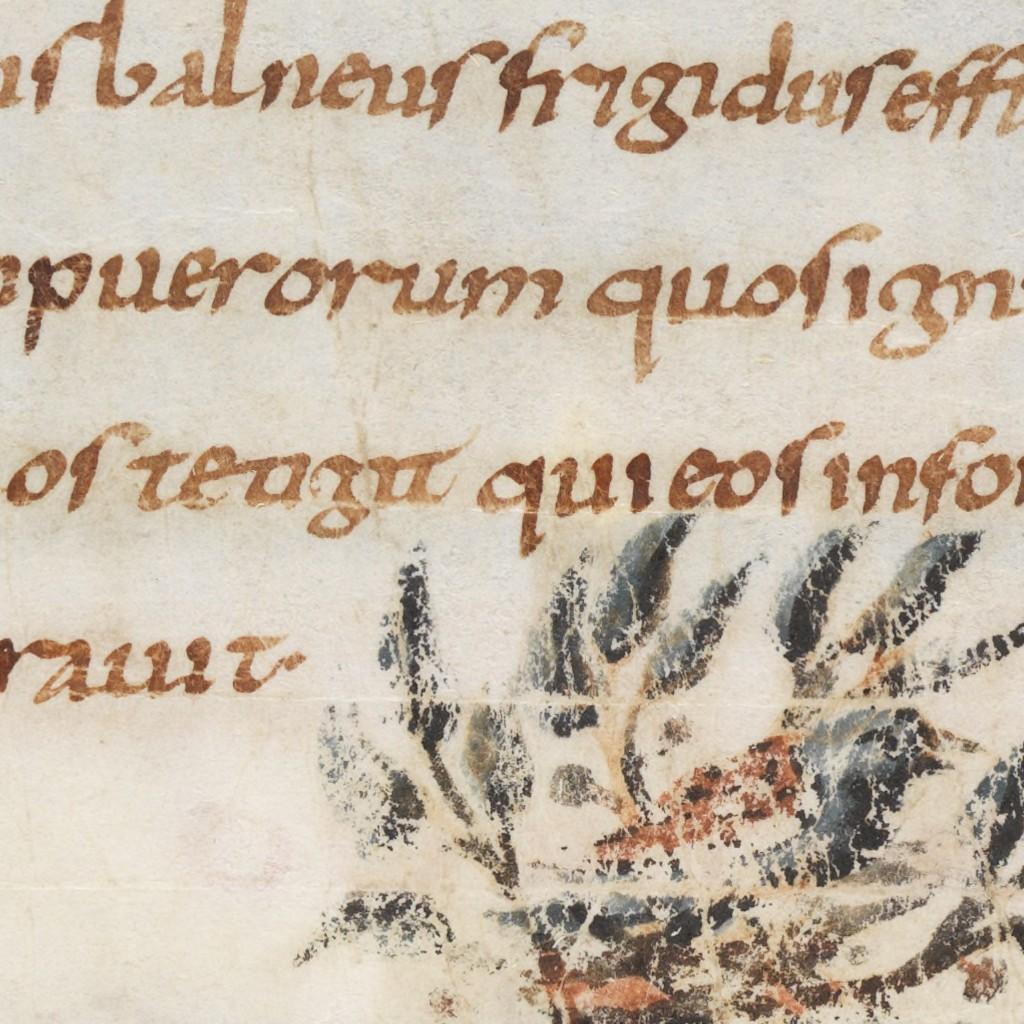 us balneus frigidus effi
puerorum quos ign
os tetigit qui eos infor
rauit.